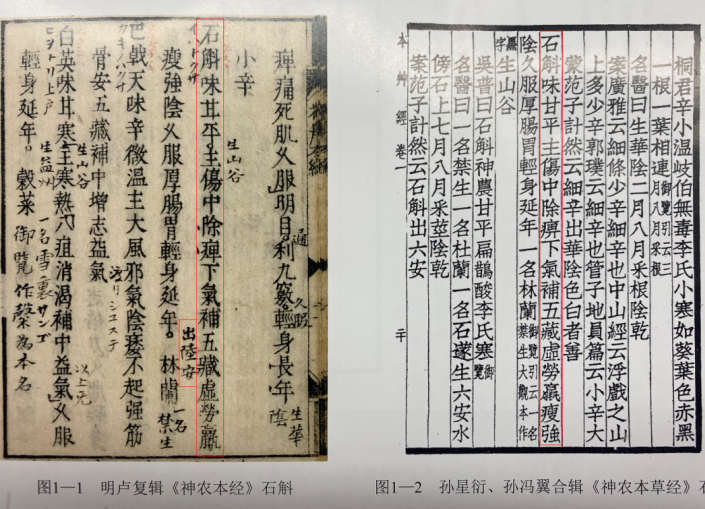 痺痛死肌久服明目利九竅輕身長年
通
生華陰
小辛
生山谷
石斛味甘平主傷中除痺下氣補五藏虛勞羸
瘦強陰久服厚腸胃輕身延年。林蘭
出陸安
一名禁生
巴戟天味辛微溫主大風邪氣陰痿不起强筋
骨安五藏補中增志益氣
生山谷
白英味甘寒主寒熱八疸消渴補中益氣久服
生益州
輕身延年。穀菜
御覽作
為本名
图1—1 明卢复辑《神农本经》石斛
桐君辛小溫岐伯無毒李氏小寒如葵葉色赤黑
一根一葉相連御覽引云三月八月采根
名醫曰生華陰二月八月采根陰乾
案廣雅云細條少辛細辛也中山經云浮戲之山
上多少辛郭璞云細辛也管子地員篇云小辛大
蒙范子計然云細辛出華陰色白者善
石斛味甘平主傷中除痹下氣補五藏虛勞羸瘦強
陰久服厚腸胃輕身延年一名林蘭御覽引云一名禁生大觀本作黑字
生山谷
吳普曰石斛神農甘平扁鵲酸李氏寒御覽
名醫曰一名禁生一名杜蘭一名石蓫生六安水
傍石上七月八月采莖陰乾
案范子計然云石斛出六安
本艸經 卷一 二十
图1—2 孙星衍、孙冯翼合辑《神农本草经》石